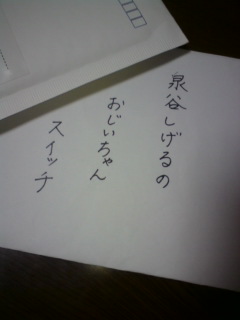 泉谷しげるの
おじいちゃん
スイッチ